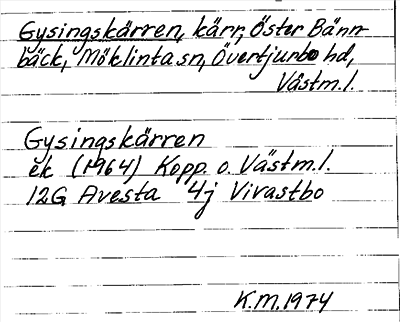 Gysingskärren, kärr, Öster Bänn-
bäck, Möklinta sn, Övertjurbo hd,
Västm.l.
Gysingskärren
ek (1964) Kopp. o. Västm.l.
12G Avesta 4j Vivastbo
K.M. 1974